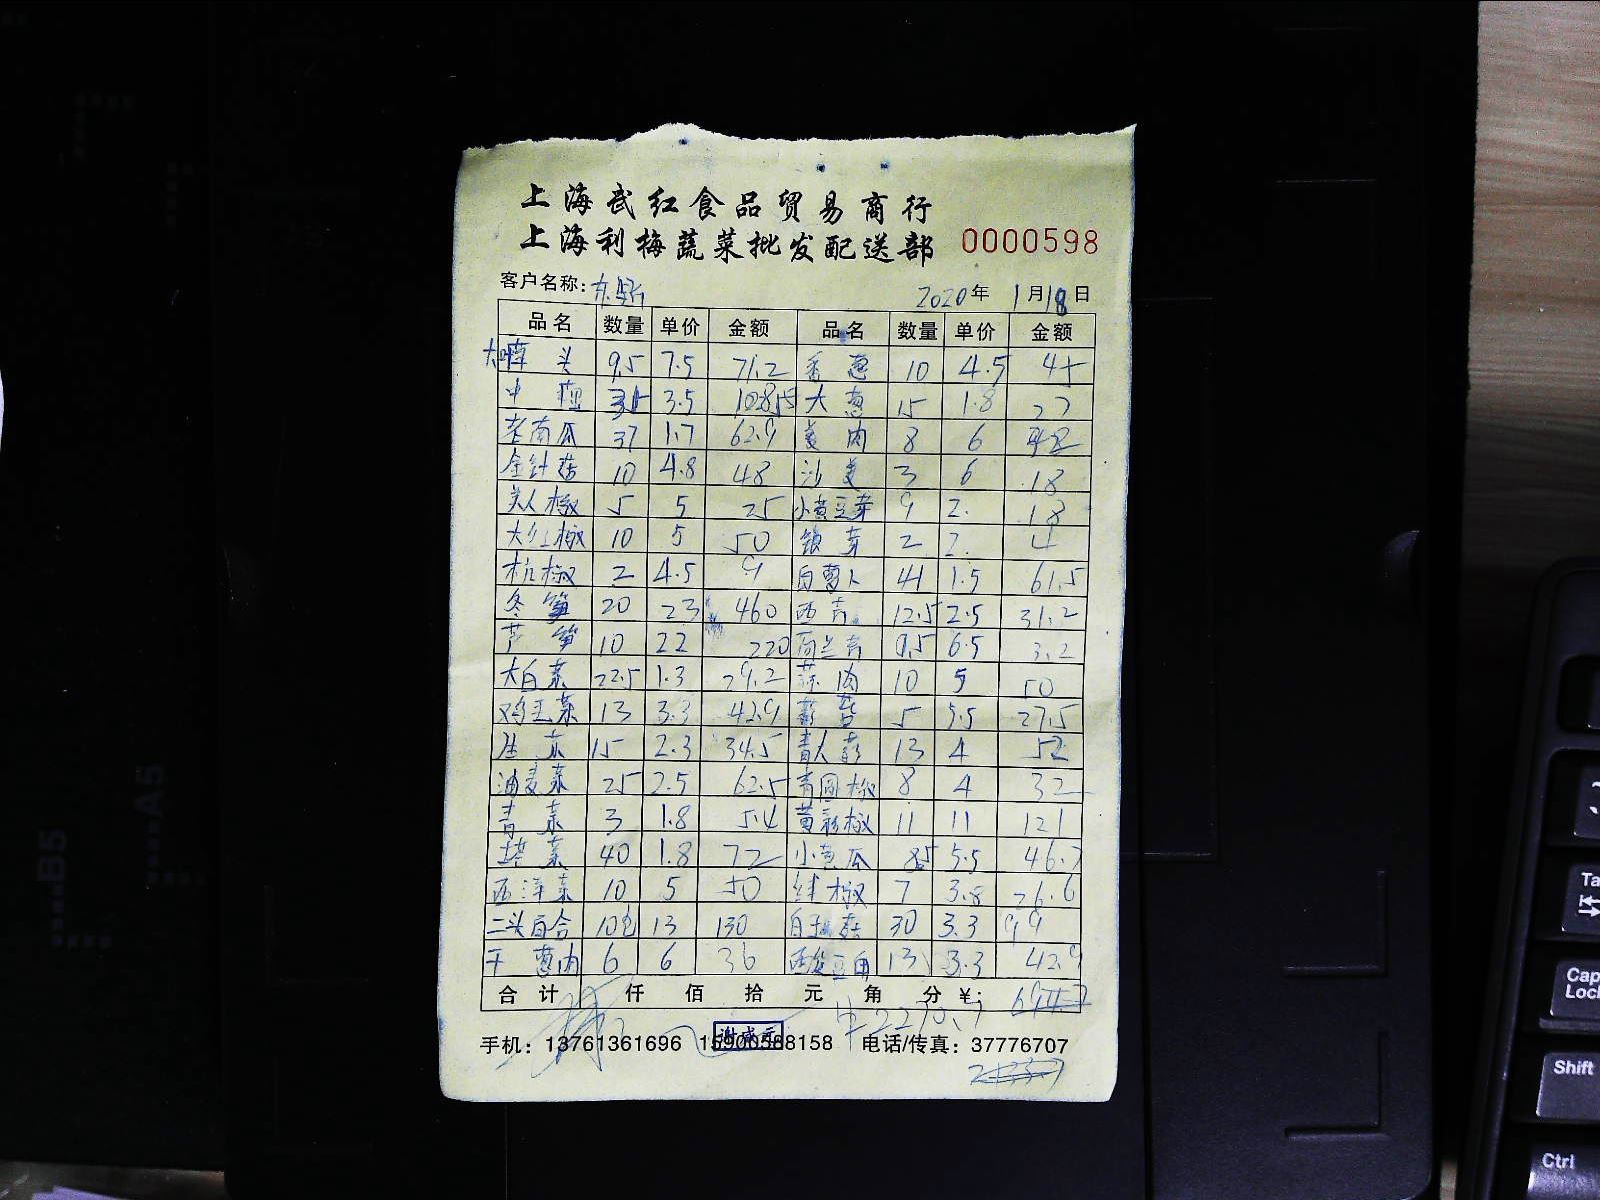 上海武红食品贸易商行
上海利梅蔬菜批发配送部 0000598
客户名称： 2020年 1月18日
品名 数量 单价 金额 品名 数量 单价 金额
头 9.5 7.5 71.2 香葱 10 4.5 45
中 3.5 大葱 15 1.8 27
老南瓜 37 1.7 62.9 姜肉 8 6 48
金针菇 10 4.8 48 沙姜 3 6 18
美人椒 5 5 25 小黄豆芽 9 2. 18
大红椒 10 5 50 银芽 2 2. 4
杭椒 2 4.5 9 白萝卜 41 1.5 61.5
冬笋 20 23 460 西芹 12.5 2.5 31.2
芦笋 10 22 220 荷兰芹 0.5 6.5 3.2
大白菜 22.5 1.3 29.2 蒜肉 10 5 50
鸡毛菜 13 3.3 42.9 蒜苗 5 5.5 27.5
生菜 15 2.3 34.5 青大蒜 13 4 52
油麦菜 25 2.5 62.5 青圆椒 8 4 32
青菜 3 1.8 5.4 黄彩椒 11 11 121
塔菜 40 1.8 72 小黄瓜 8.5 5.5 46.7
西洋菜 10 5 50 红椒 7 3.8 26.6
二头百合 10包 13 130 白玉菇 30 3.3 99
干葱肉 6 6 36 酸豆角 13 3.3 42.9
合计 仟 佰 拾 元 角 分 ¥:
2270.7
谢盛元
手机：13761361696 15900568158 电话/传真：37776707